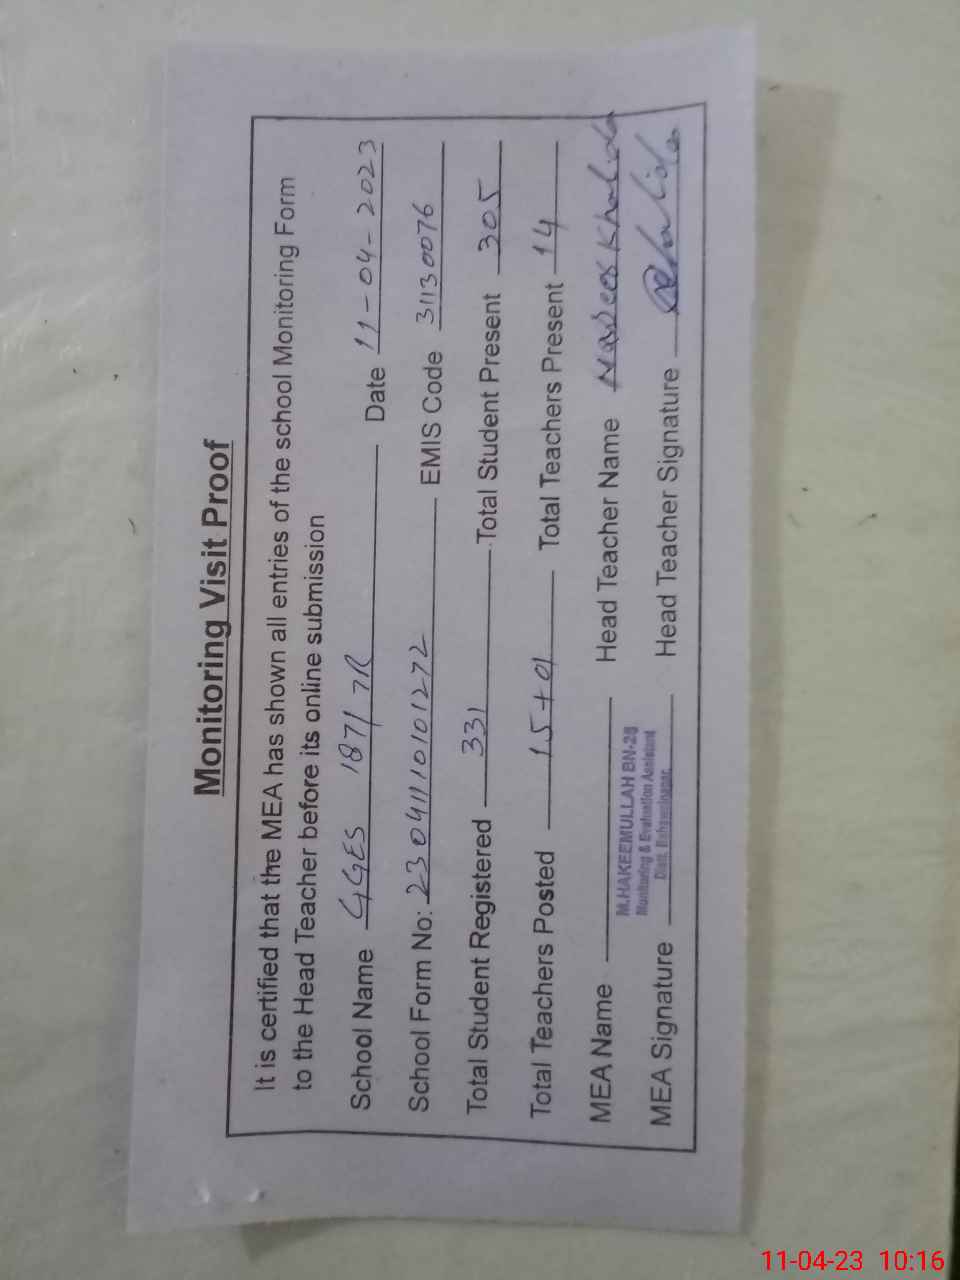 Monitoring Visit Proof
It is certified that the MEA has shown all entries of the school Monitoring Form
to the Head Teacher before its online submission
School Name GGES 187/7R Date 11-04-2023
School Form No: 23041110101272 EMIS Code 31130076
Total Student Registered 331 Total Student Present 305
Total Teachers Posted 15+01 Total Teachers Present 14
MEA Name Head Teacher Name Khalida
M.HAKEEMULLAH BN-28
Monitoring & Evaluation Assistant
Distt. Bahawalnagar
MEA Signature Head Teacher Signature Khalida
11-04-23 10:16